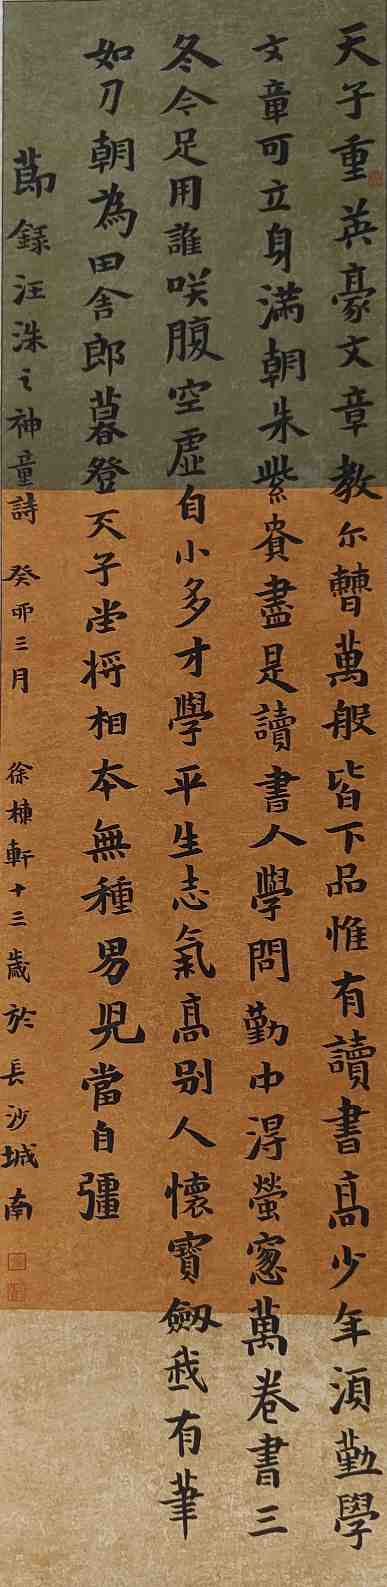 天子重英豪文章教尔曹萬般皆下品惟有讀書高少年須勤學
文章可立身滿朝朱紫貴盡是讀書人學問勤中得螢窗萬卷書三
冬今足用誰咲腹空虛自小多才學平生志氣高别人懷寶劔我有筆
如刀朝為田舍郎暮登天子堂將相本無種男兒當自彊
節録汪洙之神童詩 癸卯三月 徐棟軒十三歲於長沙城南